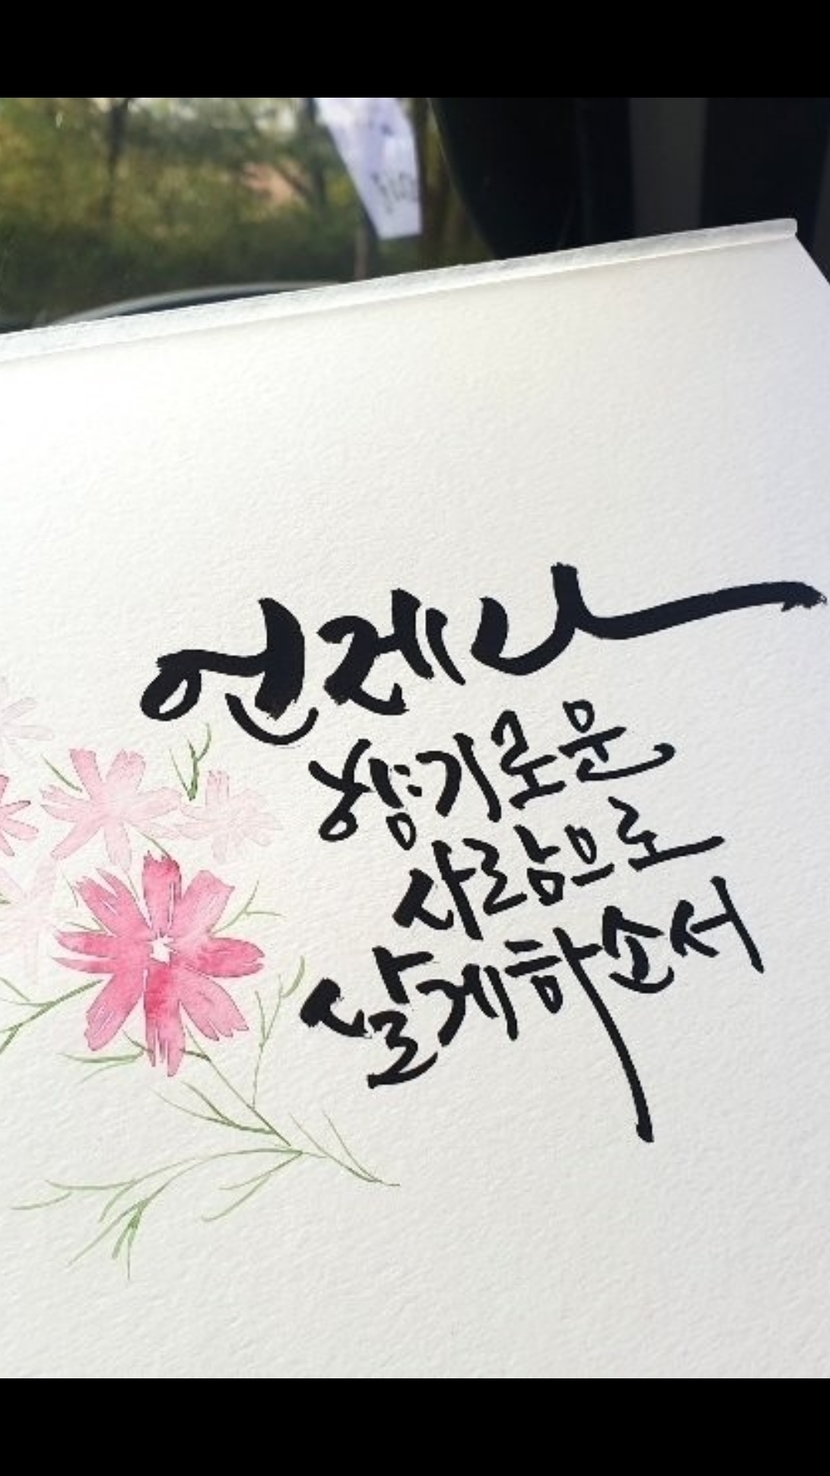 언제나
향기로운
사람으로
살게하소서